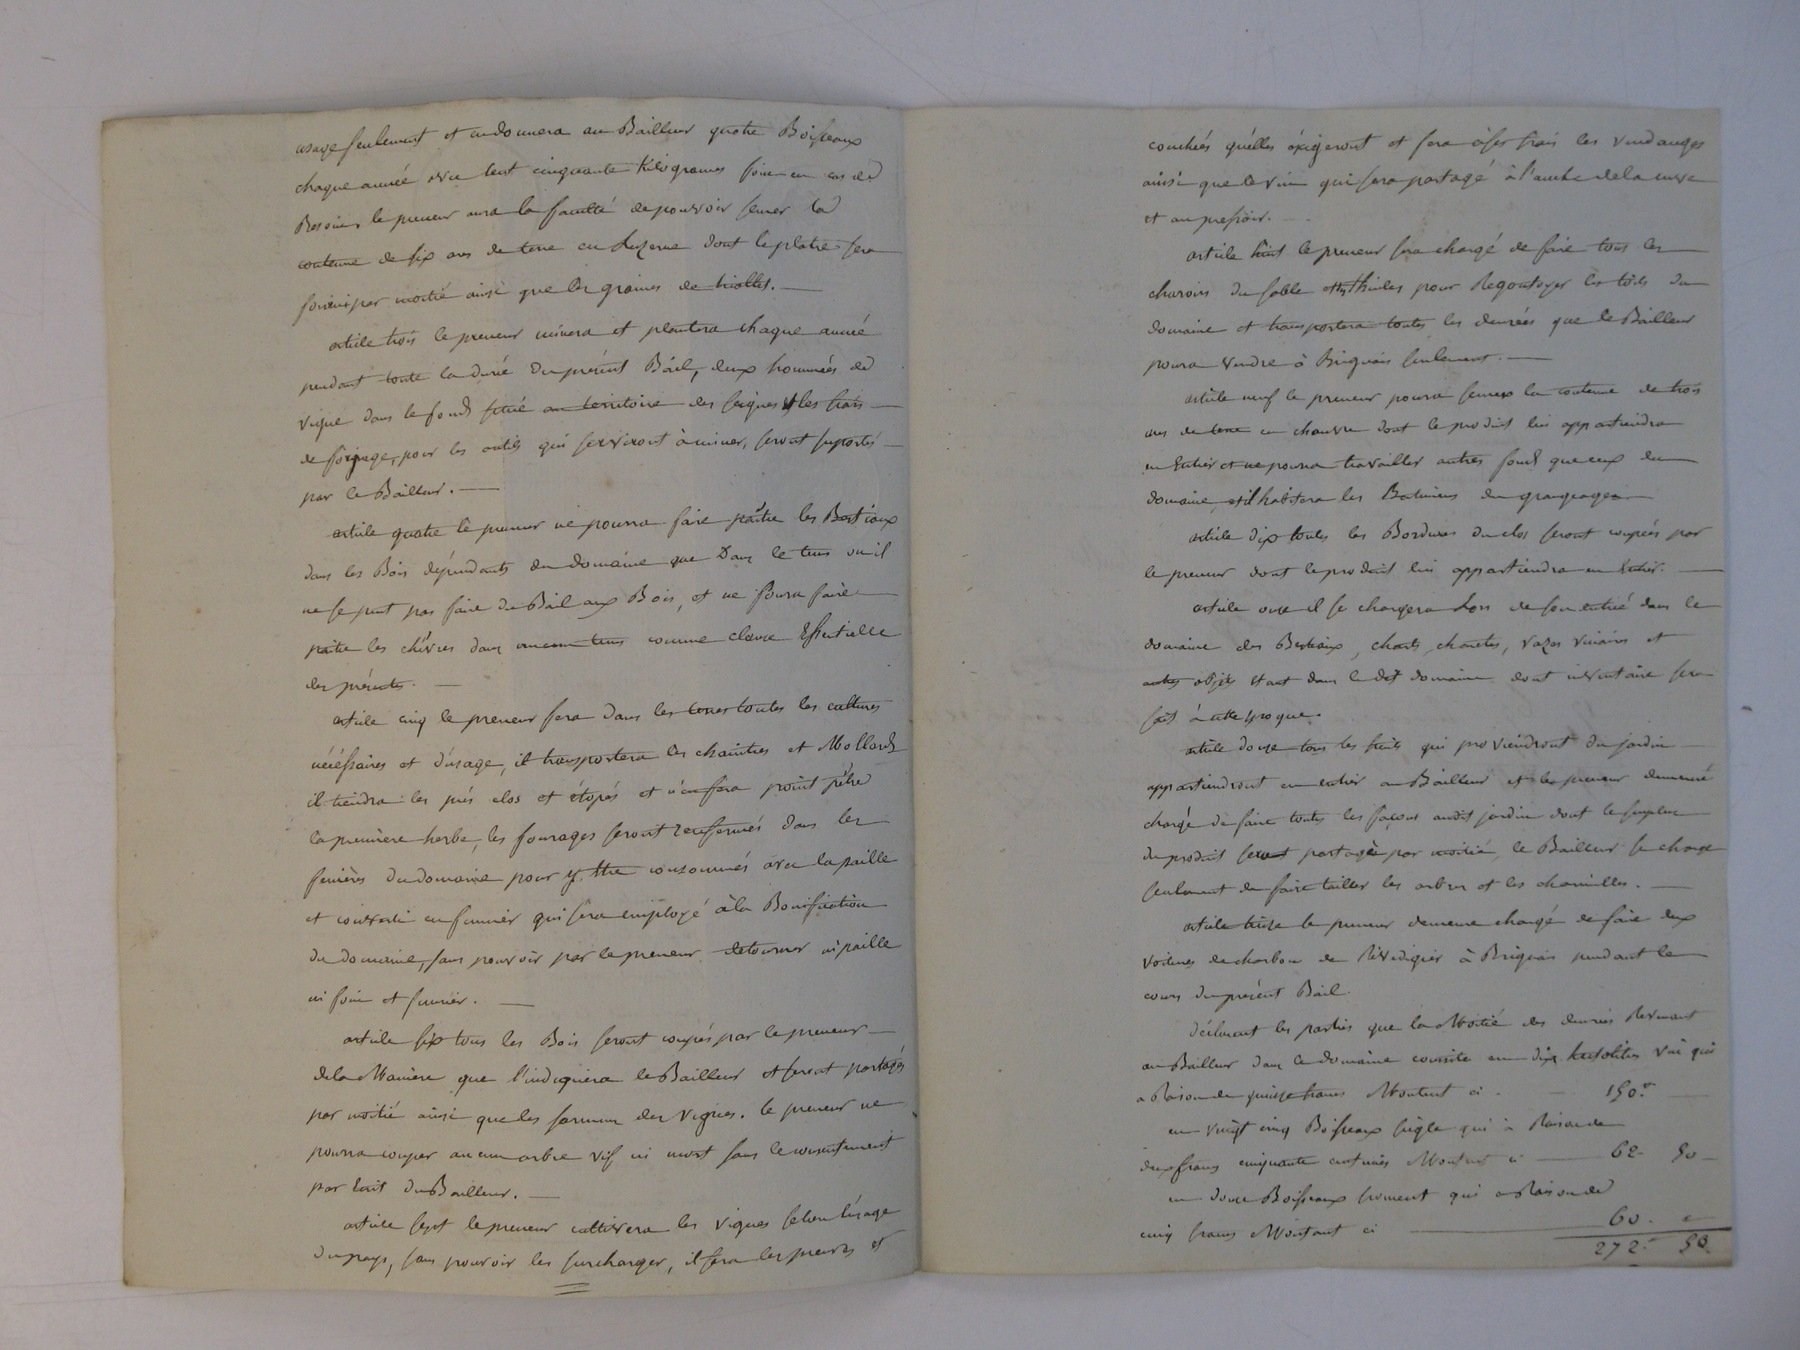 usage seulement et en donnera au Bailleur quatre Boisseaux
chaque année avec cent cinquante Kilogrames foin en cas de
Besoin, le preneur aura la faculté de pouvoir semer la
contenue de six ares de terre en Luzerne dont le platre sera
fourni par moitié ainsi que les graines de triolles.
article trois le preneur minera et plantera chaque année
pendant toute la durée du présent Bail, deux hommées de
vigne dans le fond situé au territoire des les frais
de forgeage, pour les outils qui serviront à miner, seront suportés
par le Bailleur.
article quatre le preneur ne pourra faire paitre les Bestiaux
dans les Bois dépendants du domaine que Dans le tems ou il
ne se peut pas faire du Bail aux Bois, et ne poura faire
paitre les chévres dans aucun tems comme clause Essentielle
des présentes.
article cinq le preneur fera dans les terres toutes les cultures
nécéssaires et d'usage, il transportera les chaintres et Mollards
il tiendra les prés clos et étopés et n'en fera point pètre
la première herbe, les fourages seront renfermés dans les
feniéres du domaine pour y être consommés avec la paille
et converti en fumier qui sera employé à la Bonification
du domaine, sans pouvoir par le preneur detourner ni paille
ni foin et fumier.
article six tous les Bois seront coupés par le preneur
de la Maniere que l'indiquera le Bailleur et seront partagés
par moitié ainsi que les sarmens des vignes. le preneur ne
pourra couper aucun arbre vif ni mort sans le consentement
par Ecrit du Bailleur.
article sept le preneur cultivera les vignes selon l'usage
du pays, sans pouvoir les surcharger, il fera les preuves et
couchées qu'elles éxigeront et fera à ses frais les vendanges
ainsi que le vin qui sera partagé à l'anche de la cuve
et au pressoir.
article huit le preneur sera chargé de faire tous les
charois du sable et thuiles pour Regoutoyer les toits du
domaine et transportera toutes les denrées que le Bailleur
poura vendre à Brignais seulement.
article neuf le preneur poura semer la contenue de trois
ares de terre en chanvre dont le produit lui appartiendra
en Entier et ne pourra travailler autres fonds que ceux du
domaine, et il habitera les Batimens du grangeage.
article dix toutes les Bordures du clos seront coupées par
le preneur dont le produit lui appartiendra en Entier.
article onze il se chargera Lors de son entrée dans le
domaine des Bestiaux, chars, charetes, vazes vinaires et
autres objets étant dans le dit domaine dont inventaire sera
fait à cette époque.
article douze tous les fruits qui proviendront du jardin
appartiendront en entier au Bailleur et le preneur demeure
chargé de faire toutes les façons audit jardin dont le surplus
du produit serat partagé par moitié, le Bailleur se charge
seulement de faire tailler les arbres et les charmilles.
article treize le preneur demeure chargé de faire deux
voitures de charbon de à Brignais pendant le
cours du présent Bail.
déclarent les parties que la Moitié des denrées Revenant
au Bailleur dans ce domaine consiste en dix hectolitres vin qui
a Raison de quinze francs Montent ci 150.
en vingt cinq Boisseaux seigle qui à Raison de
deux francs cinquante centimes Montent ci 62 50
en douze Boisseaux froment qui a Raison de
cinq francs Montant ci 60
272 50